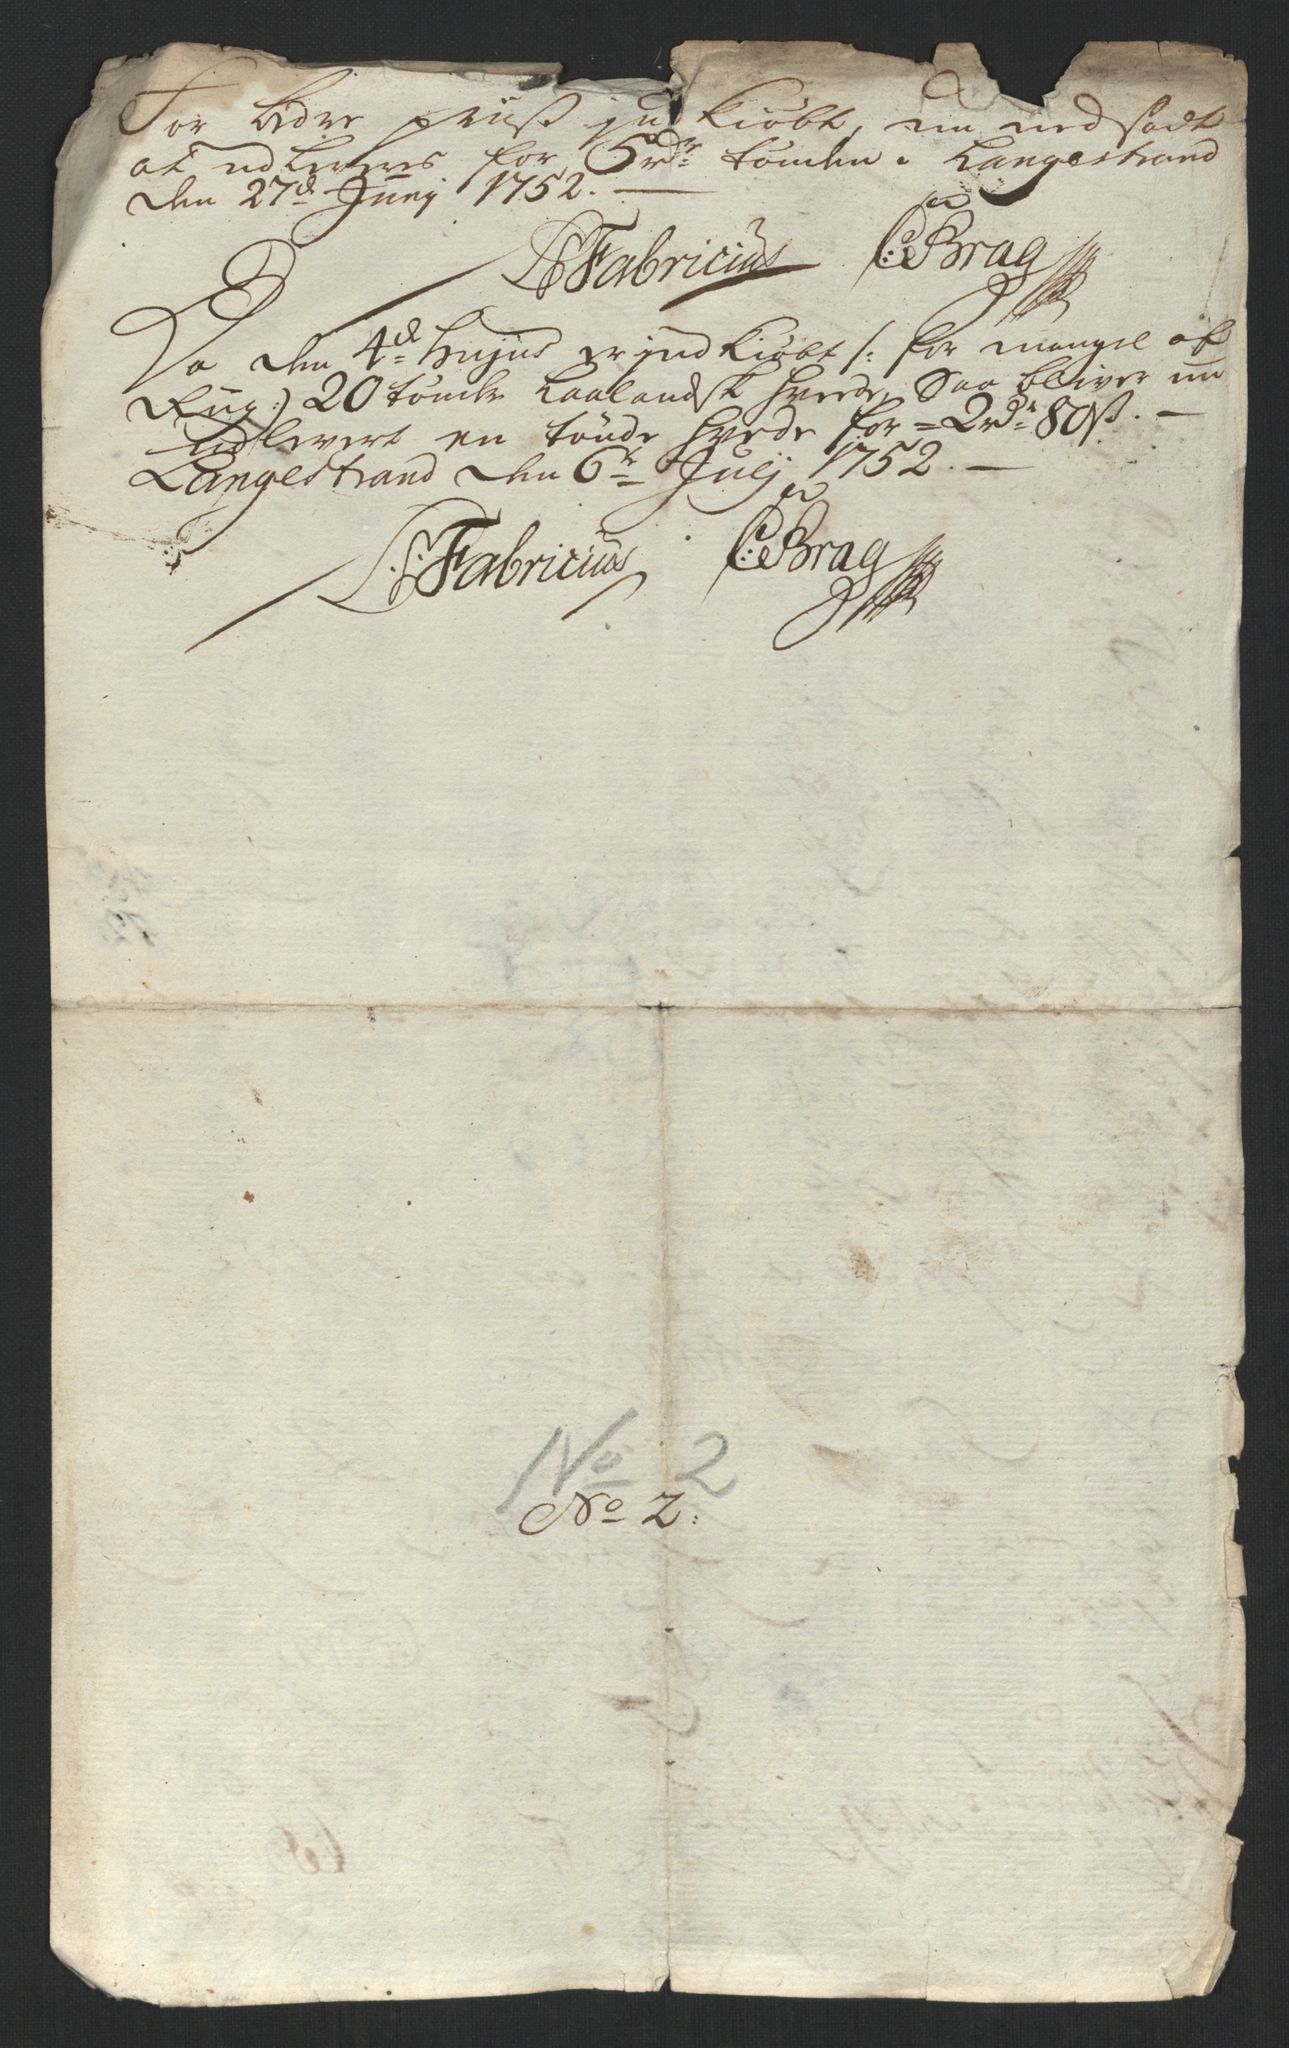 For bedre priiss indkiøbt, nu nedsadt
at udleveres for 5 rdr tønden. Langestrand
den 27d Junij 1752. —
LS Fabricius C Brag
Da den 4d hujus er indkiøbt /: for mangel af
Rug :/ 20 tønder Laalandsk hvede, Saa bliver nu
udlevert en tønde hvede for = 2 rdr 80 ss. —
Langestrand den 6te Julij 1752. —
LS Fabricius C Brag
No 2
No 2: